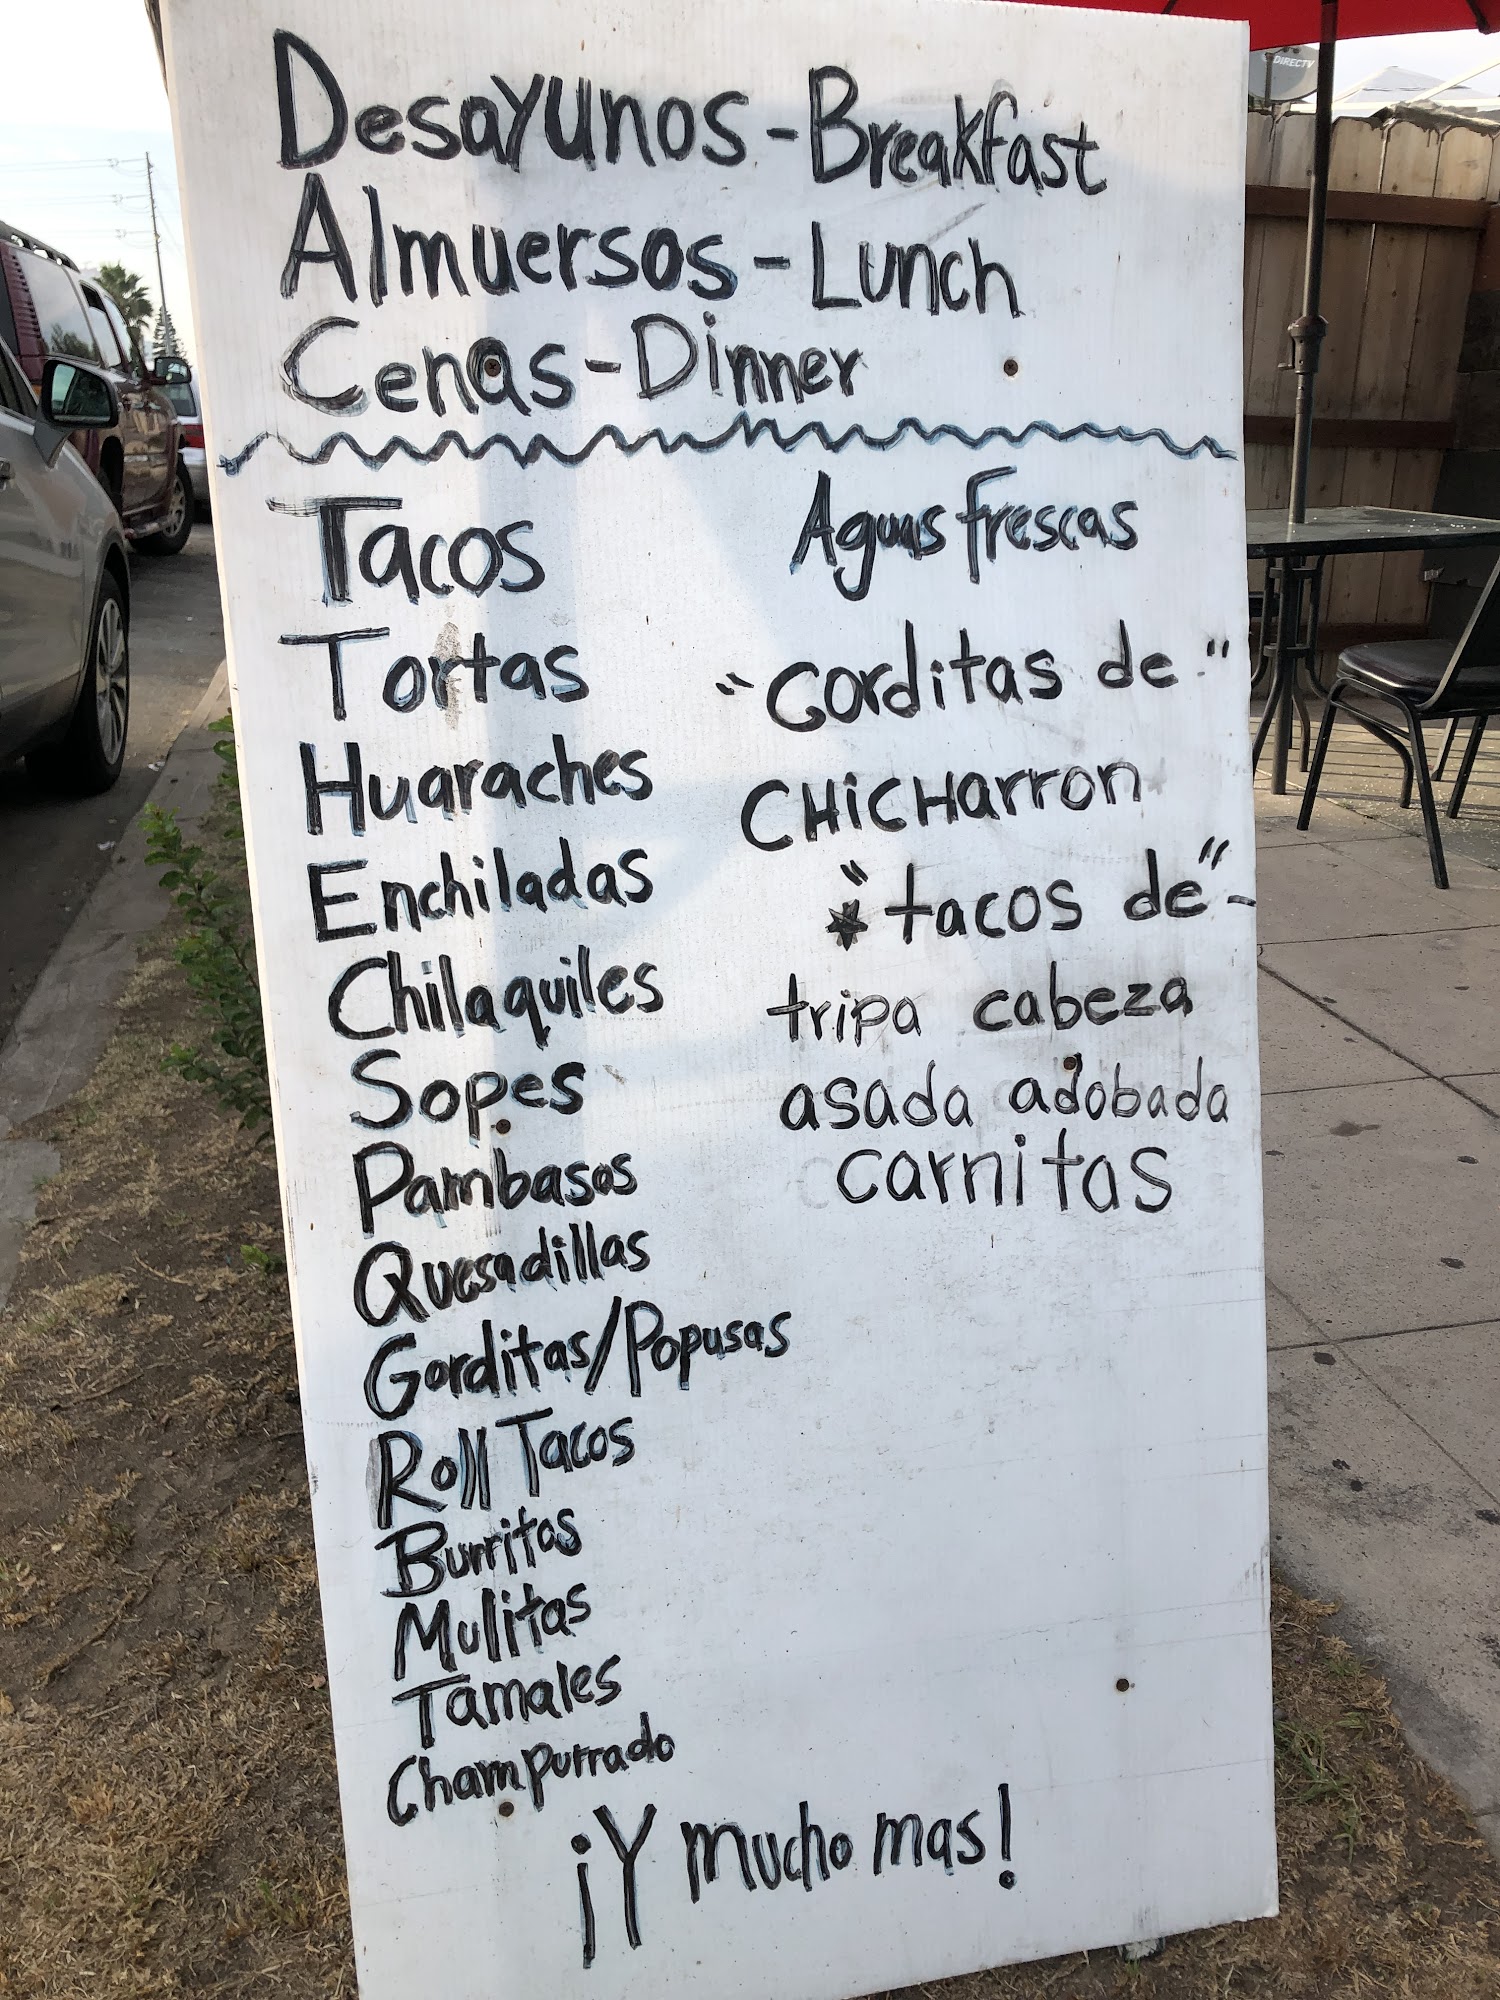 Desayunos - Breakfast
Almuersos - Lunch
Cenas - Dinner
Tacos
Tortas
Huaraches
Enchiladas
Chilaquiles
Sopes
Pambasos
Quesadillas
Gorditas/Popusas
Roll Tacos
Burritos
Mulitas
Tamales
Champurrado
Aguas frescas
"Gorditas de"
CHiCHarron
"tacos de"-
tripa cabeza
asada adobada
carnitas
¡Y mucho mas!
DIRECTV